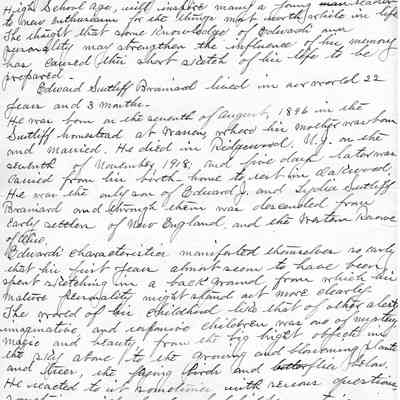 High School age, will inspire many a young man reader
to new enthusiasm for the things most worth while in life.
The thought that some knowledge of Edward's own
personality may strengthen the influence of his memory
has caused this short sketch of his life to be
prepared.
Edward Sutliff Brainard lived in our world 22
years and 3 months.
He was born on the seventh of August, 1896 in the
Sutliff homestead at Warren, where his mother was born
and married. He died in Ridgewood, N.J. on the
seventh of November, 1918, and five days later was
carried from his birth home to rest in Oakwood.
He was the only son of Edward J. and Lydia Sutliff
Brainard and through them was descended from
early settlers of New England, and the Western Reserve
of Ohio.
Edward's characteristics manifested themselves so early
that his first years almost seem to have been
spent sketching in a background from which his
mature personality might stand out more clearly.
The world of his childhood like that of other alert
imaginative and responsive children was one of mystery
magic and beauty, from the big bright objects in
the sky above to the growing and blossoming plants
and trees, the flying birds and butterflies below.
He reacted to it sometimes with serious questions